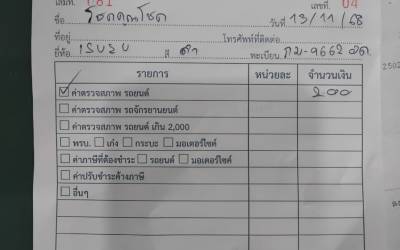 เล่มที่ 181 เลขที่ 04
ชื่อ โชคคูณโชค วันที่ 13/11/68
ที่อยู่ โทรศัพท์ที่ติดต่อ
ยี่ห้อ ISUZU สี ดำ ทะเบียน กม-9662
รายการ หน่วยละ จำนวนเงิน
☑ ค่าตรวจสภาพ รถยนต์ 200
☐ ค่าตรวจสภาพ รถจักรยานยนต์
☐ ค่าตรวจสภาพ รถยนต์ เกิน 2,000
☐ พรบ. ☐ เก๋ง ☐ กระบะ ☐ มอเตอร์ไซค์
☐ ค่าภาษีที่ต้องชำระ ☐ รถยนต์ ☐ มอเตอร์ไซค์
☐ ค่าปรับชำระค้างภาษี
☐ อื่นๆ